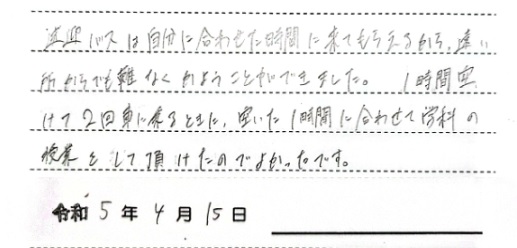 送迎バスは自分に合わせた時間に来てもらえるから、遠い
所からでも難なくかようことができました。 1時間空
けて2回車に乗るときに、空いた1時間に合わせて学科の
授業をして頂けたのでよかったです。
令和5年4月15日